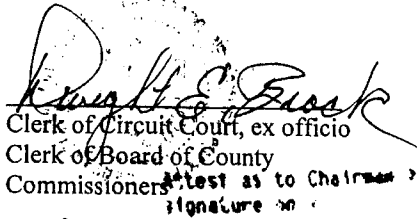 Dwight E. Brock
Clerk of Circuit Court, ex officio
Clerk of Board of County
Commissioners Attest as to Chairman
signature on